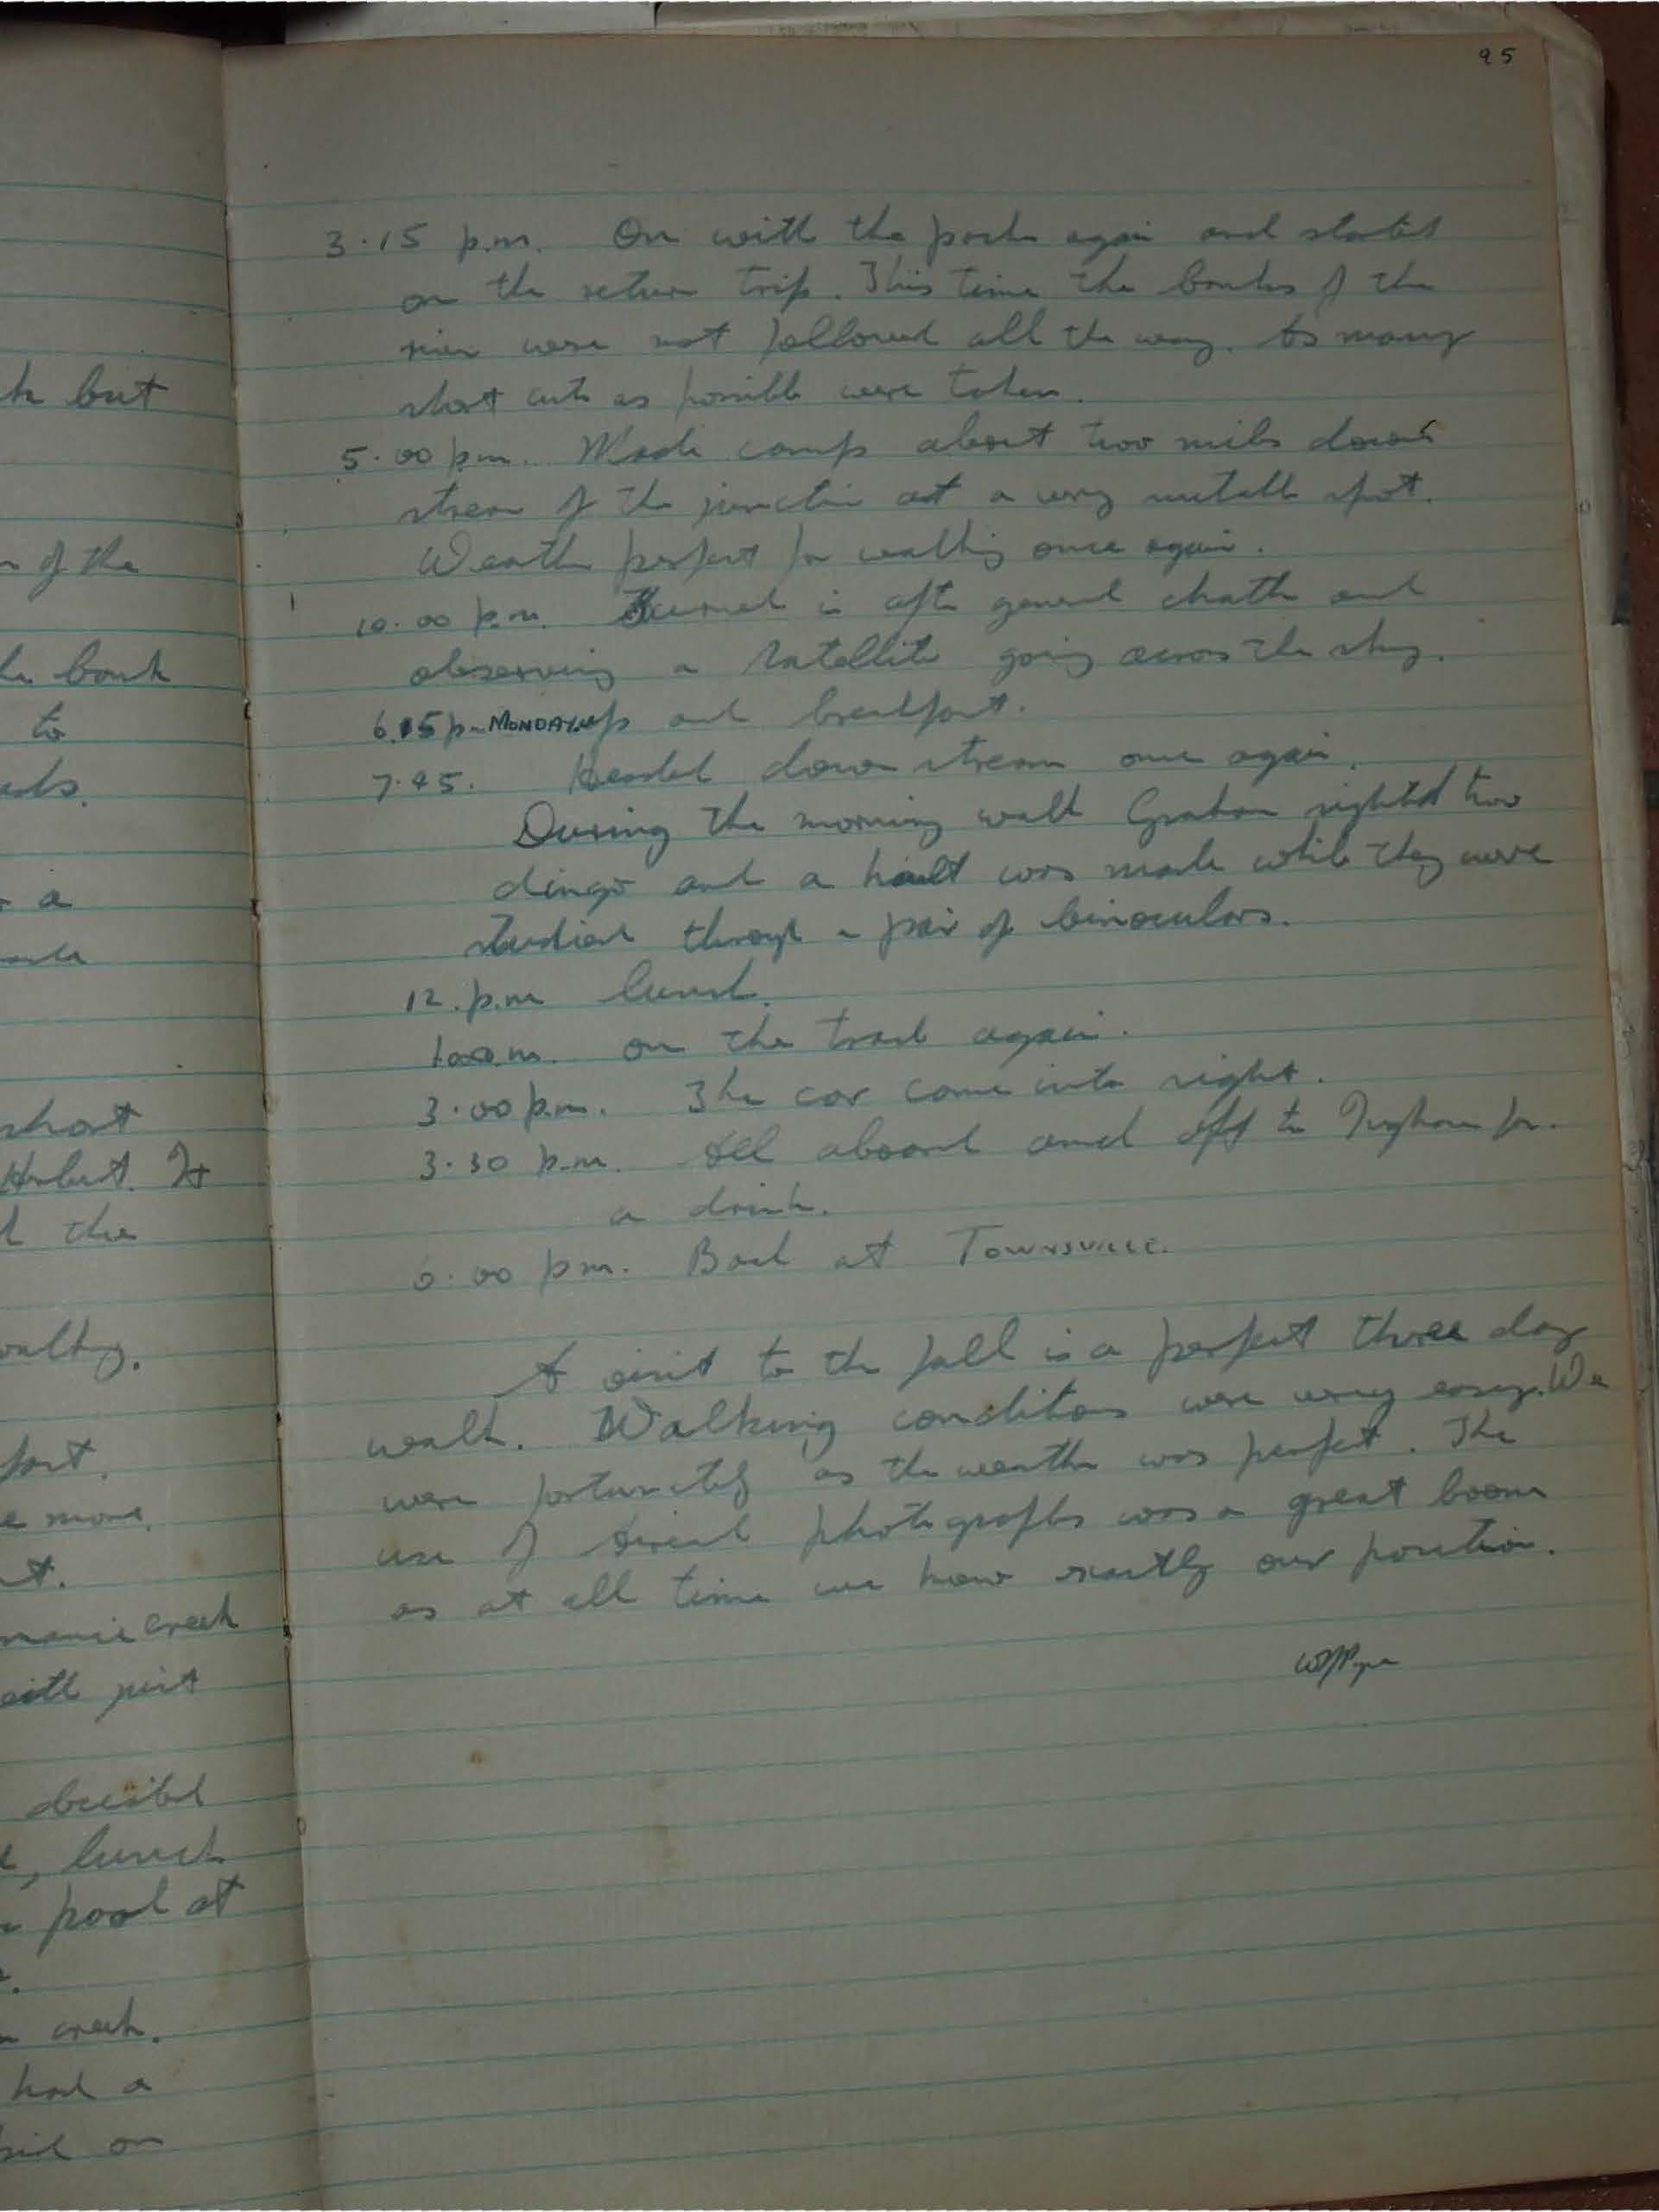 k but
of the
bank
to
a
short
Herbert. It
the
walking.
more.
creek
with just
decided
lunch
pool at
creek.
had a
on
95
3.15 p.m. On with the packs again and started
on the return trip. This time the banks of the
river were not followed all the way. As many
short cuts as possible were taken.
5.00 p.m. Made camp about two miles down
stream of the junction at a very suitable spot.
Weather perfect for walking once again.
10.00 p.m. Turned in after general chatter and
observing a satellite going across the sky.
6.15 p.m MONDAY up and breakfast.
7.45. Headed down stream once again.
During the morning walk Graham sighted two
dingo and a hault was made while they were
studied through a pair of binoculars.
12. p.m Lunch.
on the track again.
3.00 p.m. The car came into sight.
3.30 p.m. All aboard and off to Ingham for
a drink.
6.00 p.m. Back at TOWNSVILLE.
A visit to the fall is a perfect three day
walk. Walking conditions were very easy. We
were fortunately as the weather was perfect. The
use of aerial photographs was a great boom
as at all time we knew exactly our position.